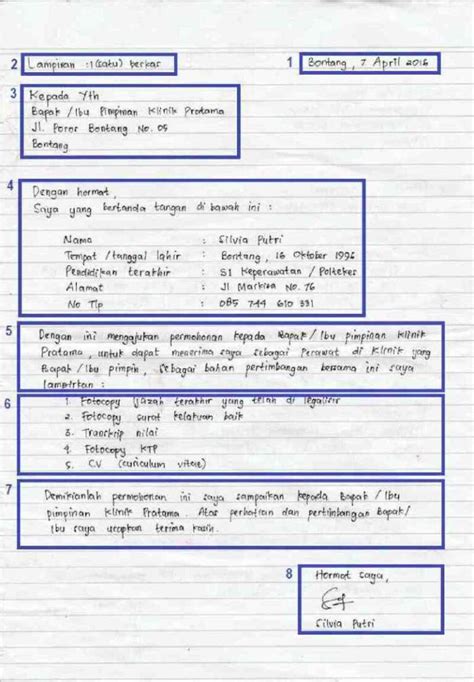 1 Bontang, 7 April 2016
2 Lampiran : 1 (satu) berkas
3 Kepada Yth
Bapak / Ibu Pimpinan Klinik Pratama
Jl. Poros Bontang No. 05
Bontang
4 Dengan hormat,
Saya yang bertanda tangan di bawah ini :
Nama : Silvia Putri
Tempat / tanggal lahir : Bontang, 16 Oktober 1996
Pendidikan terakhir : S1 Keperawatan / Poltekes
Alamat : Jl Markisa No. 76
No Tlp : 085 744 610 331
5 Dengan ini mengajukan permohonan kepada Bapak / Ibu pimpinan Klinik
Pratama, untuk dapat menerima saya sebagai Perawat di Klinik yang
Bapak / Ibu pimpin, sebagai bahan pertimbangan bersama ini saya
lampirkan :
6 1. Fotocopy Ijazah terakhir yang telah di legalisir
2. Fotocopy surat kelakuan baik
3. Transkrip nilai
4. Fotocopy KTP
5. CV (curiculum vitae)
7 Demikianlah permohonan ini saya sampaikan kepada Bapak / Ibu
pimpinan Klinik Pratama. Atas perhatian dan pertimbangan Bapak/
Ibu saya ucapkan terima kasih.
8 Hormat saya,
Silvia Putri